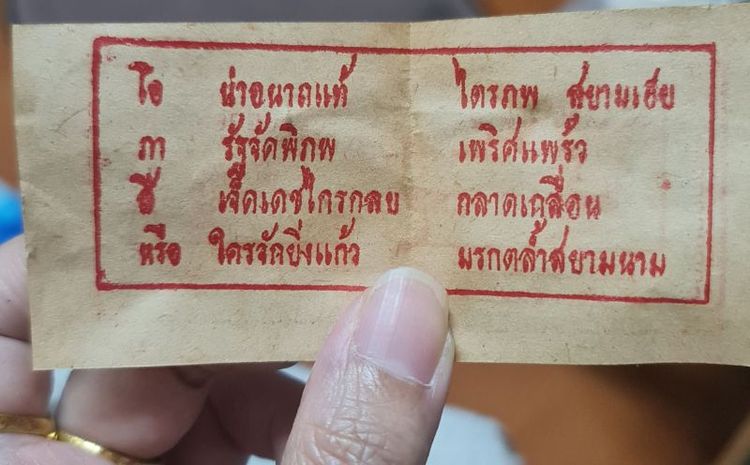 โอ น่าอนาถแท้ ไตรภพ สยามเฮย
ภา รัฐจัดพิภพ เพริศแพร้ว
ชี เจ็ดเดชไกรกลบ กลาดเกลื่อน
หรือ ใครจักยิ่งแก้ว มรกตล้ำสยามนาม